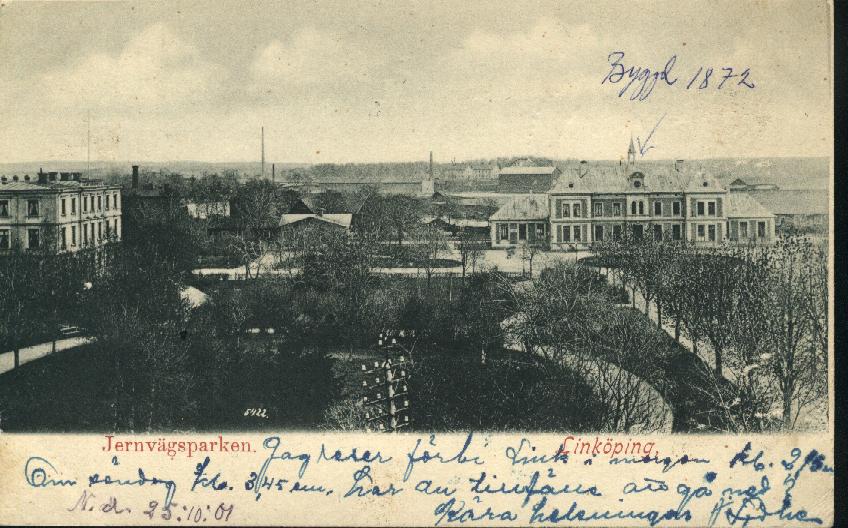 Byggd 1872
5422.
Jernvägsparken. Linköping.
Jag reser förbi Link i morgon kl.
Om söndag kl. 3,45 em. har du tillfälle att gå ned?
N. d. 25.10.01 Kära helsningar